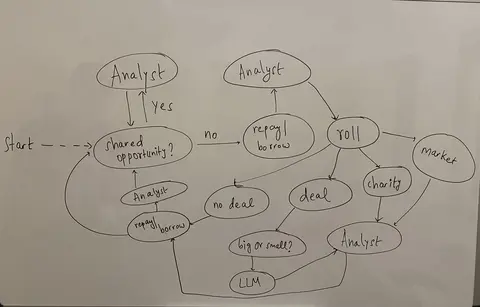 Analyst
Analyst
Yes
Start
shared
opportunity?
no
repay/
borrow
roll
market
Analyst
no deal
deal
charity
repay/
borrow
big or small?
Analyst
LLM